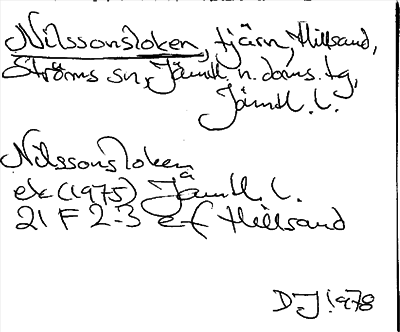 Nilssonsloken, tjärn, Hillsand,
Ströms sn, Jämtl. n. doms. tg,
Jämtl. l.
Nilssonsloken
ek (1975) Jämtl. l.
21 F 2-3 e f Hillsand
D.J 1978